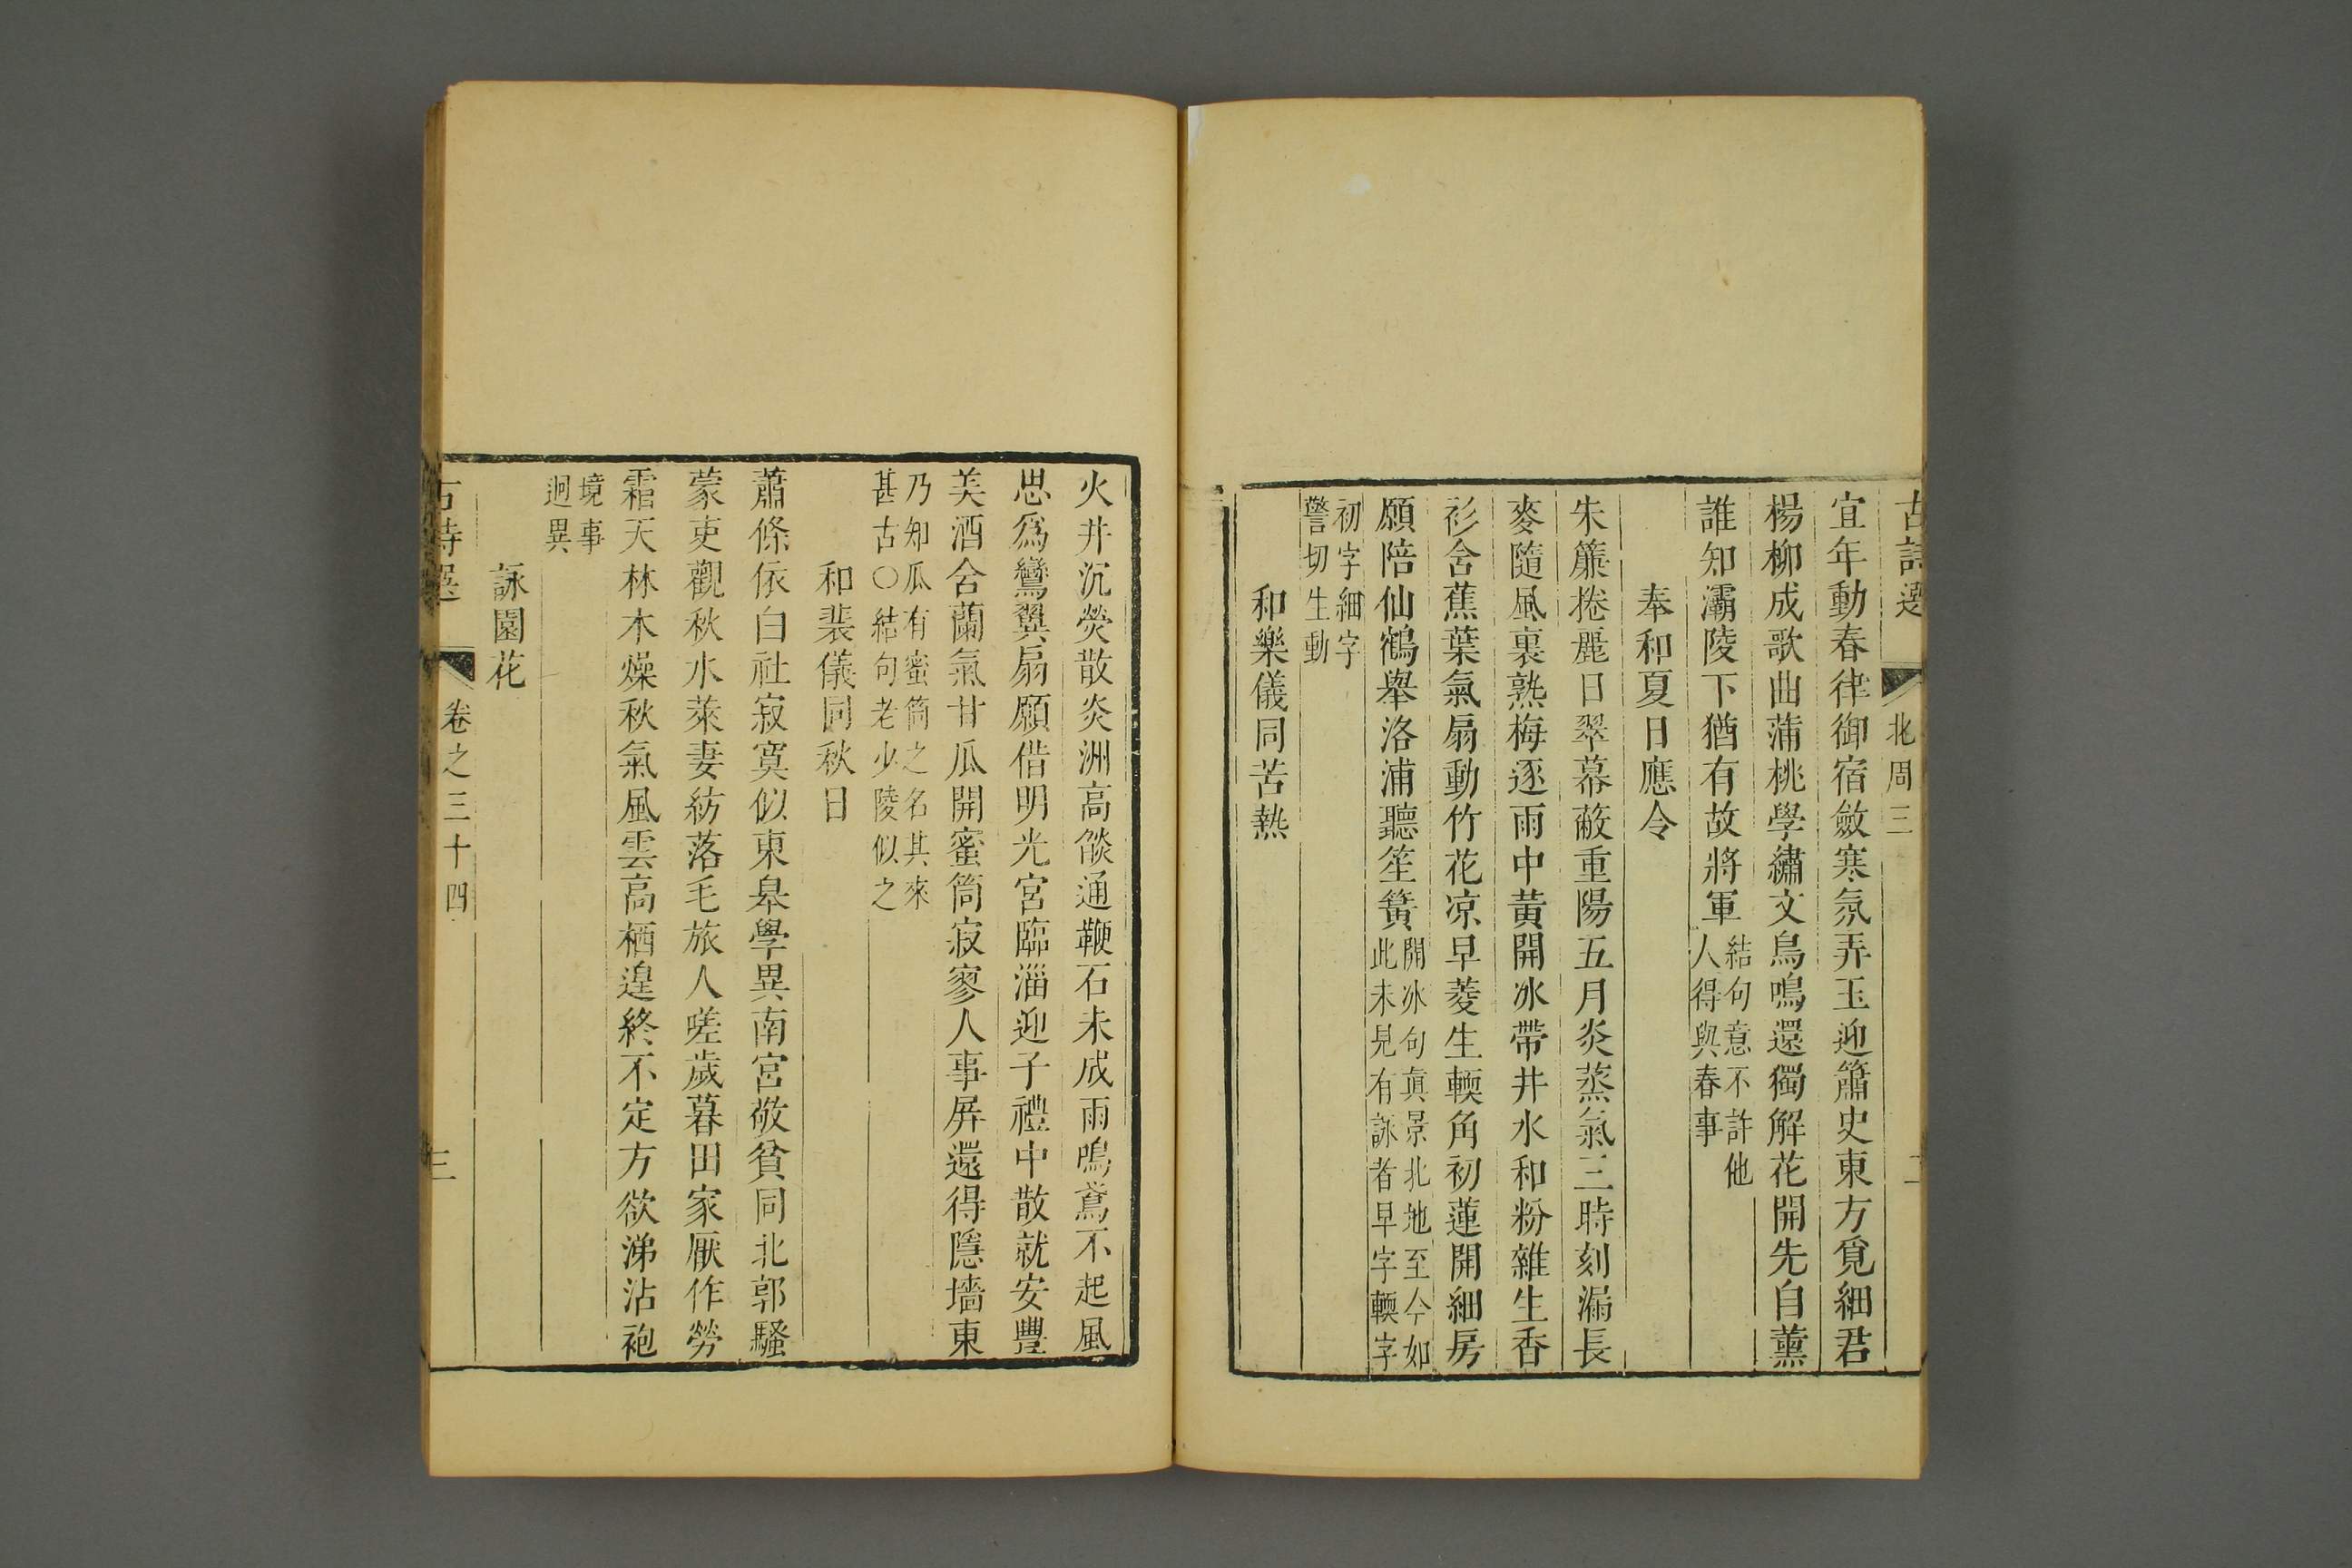 古詩選 北周三
宜年動春律御宿斂寒氛弄玉迎簫史東方覓細君
楊柳成歌曲蒲桃學繡文鳥鳴還獨解花開先自薰
誰知灞陵下猶有故將軍結句意不許他
人得與春事
奉和夏日應令
朱簾捲麗日翠幕蔽重陽五月炎蒸氣三時刻漏長
麥隨風裏熟梅逐雨中黃開冰帶井水和粉雜生香
衫含蕉葉氣扇動竹花凉早菱生輭角初蓮開細房
願陪仙鶴舉洛浦聽笙簧開冰句眞景北地至今如
此未見有詠者早字輭字
初字細字
警切生動
和樂儀同苦熱
火井沉熒散炎洲高燄通鞭石未成雨鳴鳶不起風
思爲鸞翼扇願借明光宮臨淄迎子禮中散就安豐
美酒含蘭氣甘瓜開蜜筒寂寥人事屏還得隱墻東
乃知瓜有蜜筒之名其來
甚古○結句老少陵似之
和裴儀同秋日
蕭條依白社寂寞似東臯學異南宮敬貧同北郭騷
蒙吏觀秋水萊妻紡落毛旅人嗟歲暮田家厭作勞
霜天林木燥秋氣風雲高栖遑終不定方欲涕沾袍
境事
迥異
詠園花
古詩選 卷之三十四 三